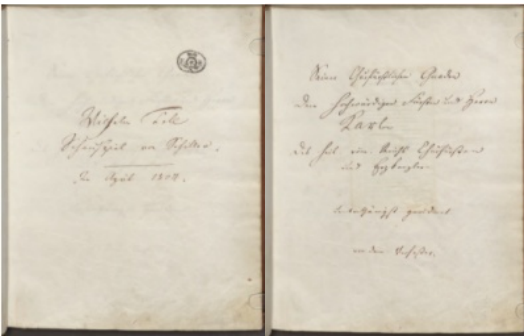 Wilhelm Tell
Schauspiel von Schiller.
Im April 1804.
Seiner Churfürstlichen Gnaden
Dem Hochwürdigsten Fürsten und Herrn
Karl
Des heil. röm. Reichs Churfürsten
und Erzkanzler
unterthänigst gewidmet
von dem Verfasser.